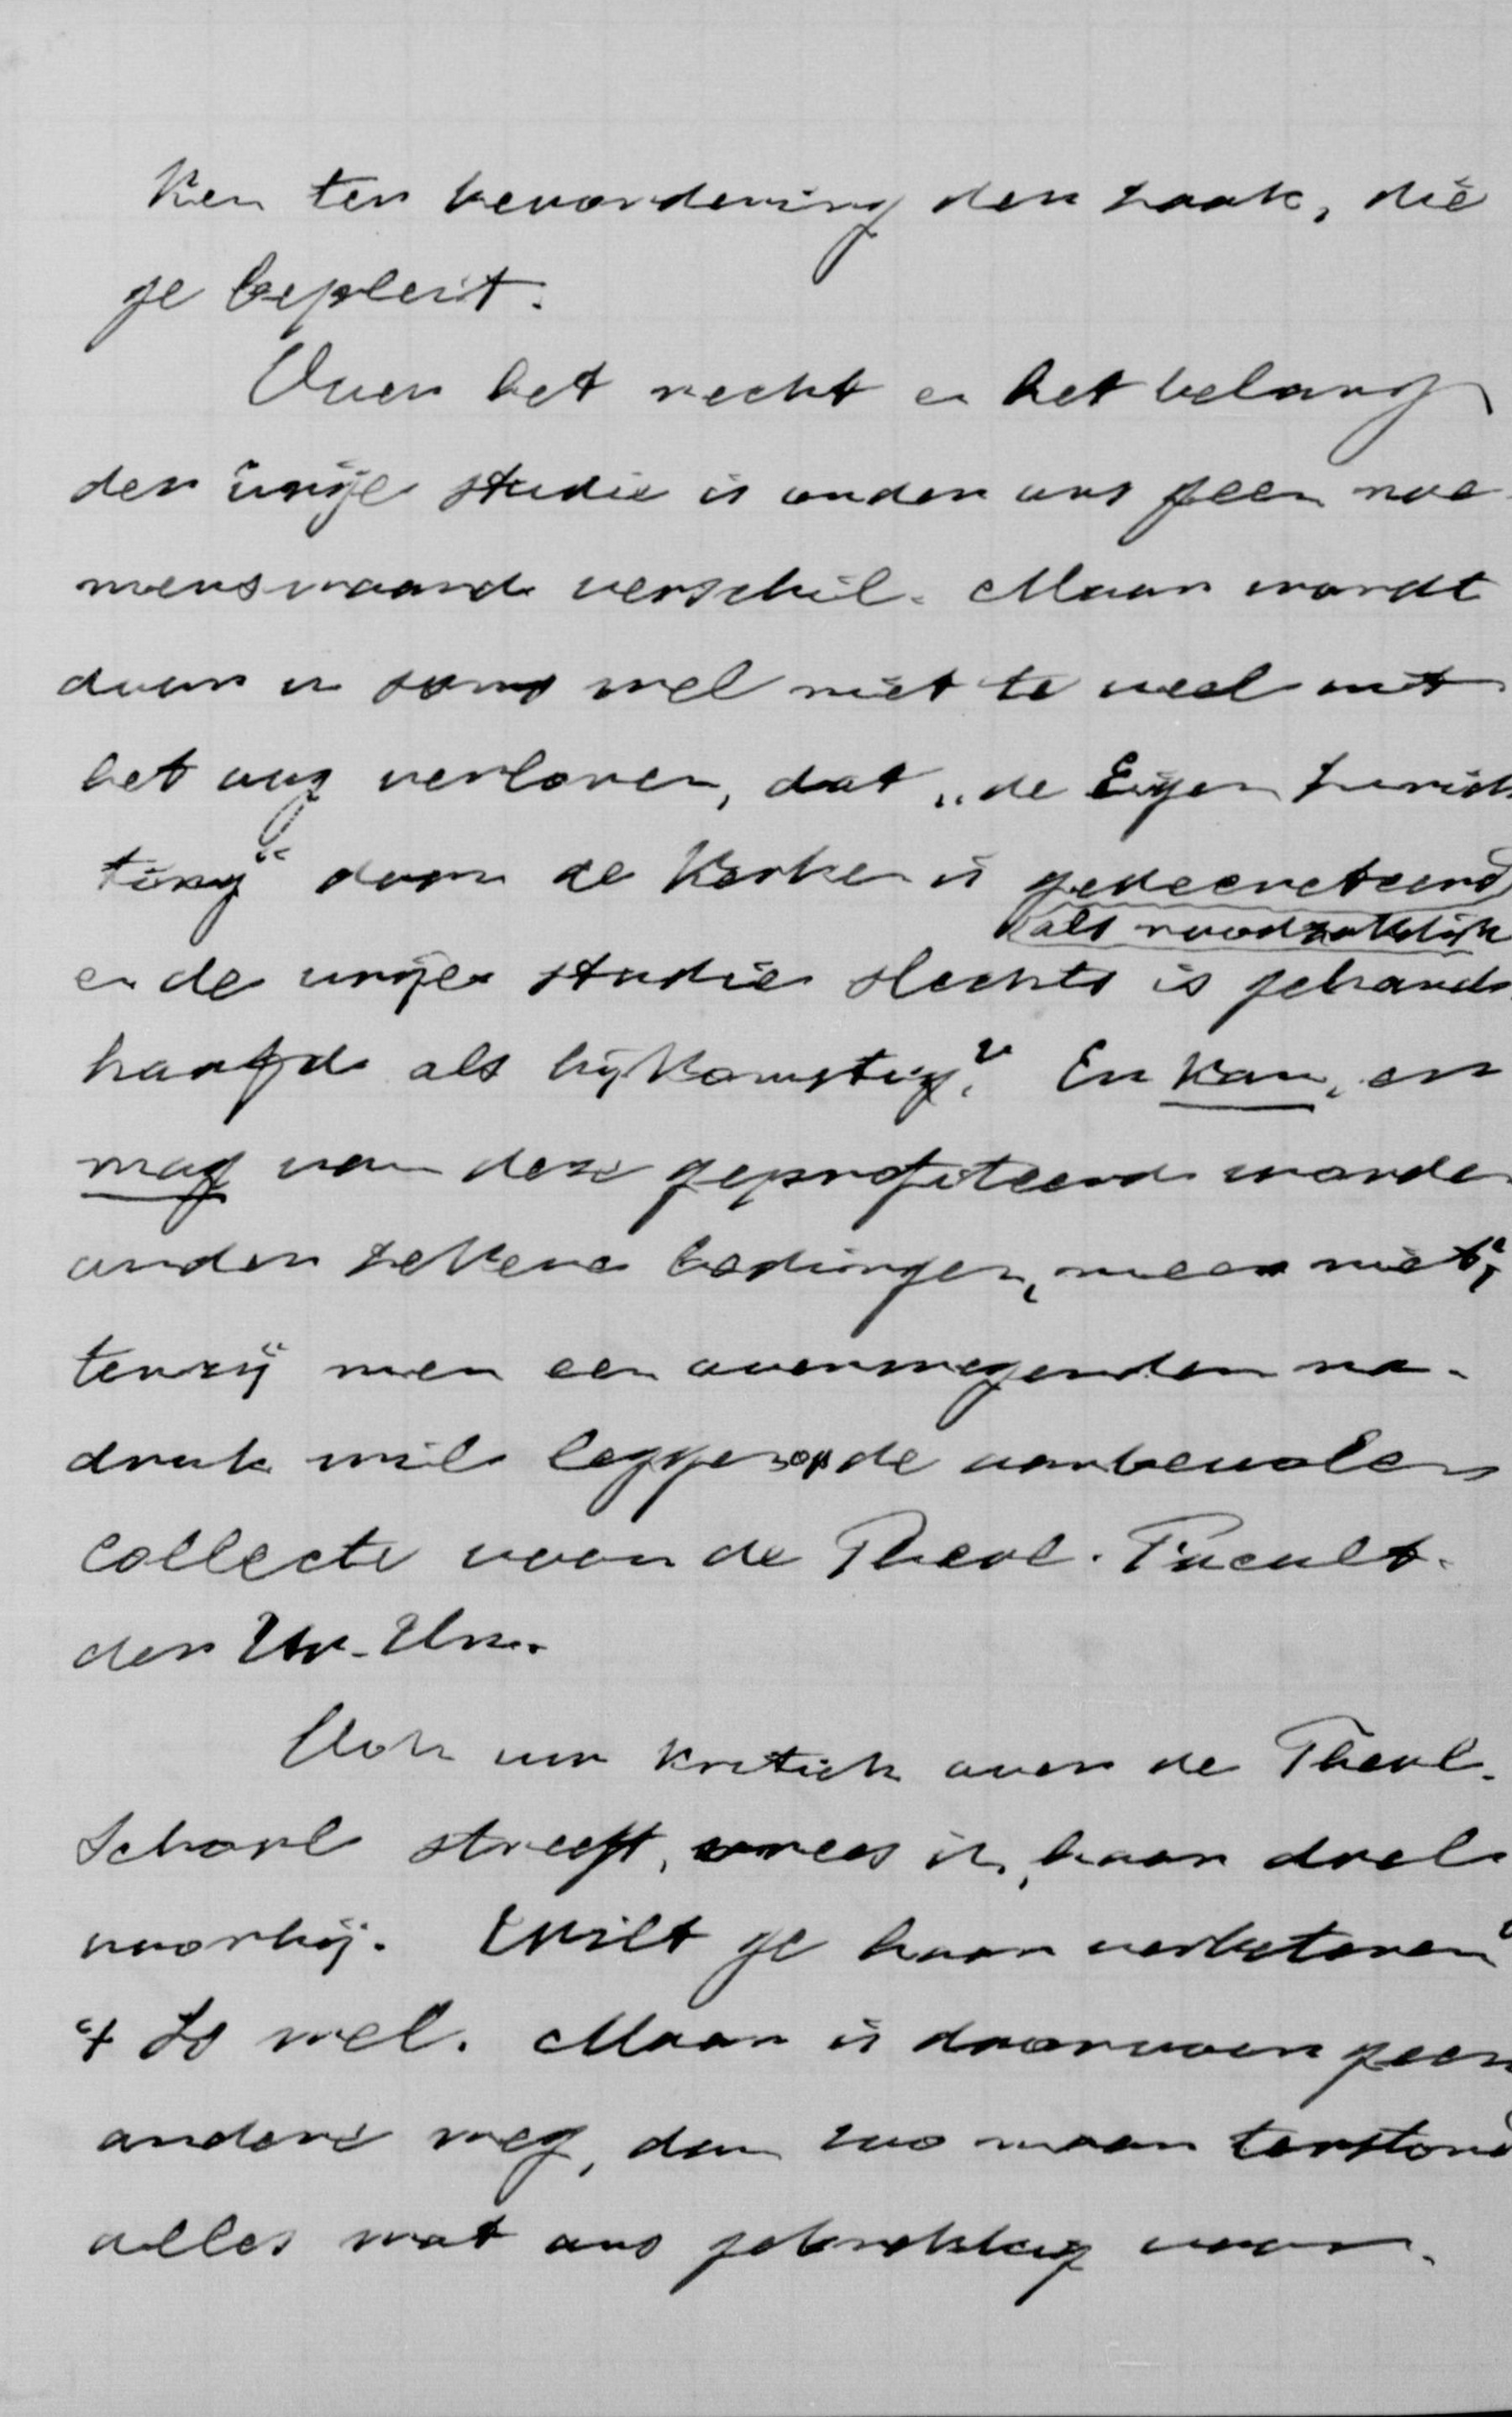 ken ter bevordering der zaak, die
ge bepleit.
Over het recht en het belang
der vrije studie is onder ons geen noe-
menswaard verschil. Maar wordt
daar u soms wel niet te veel uit
het oog verloren, dat „de Eigen Inrich-
ting" door de Kerken is gedecreteerd
als noodzakelijk
en de vrije studie slechts is gehand-
haafd als bijkomstig? En kan, en
mag van deze geprofiteerd worden
onder zekere bedingen, meer niet;
tenzij men een overwegenden na-
druk wil leggen op de aanbevolen
collecte voor de Theol. Facult.
der Vr. Un.
Ook uw kritiek over de Theol.
School streeft, vrees ik, haar doel
voorbij. Wilt ge haar verbeteren?
't Is wel. Maar is daarvoor geen
andere weg, dan zoo maar terstond
alles wat ons gebrekkig voor-